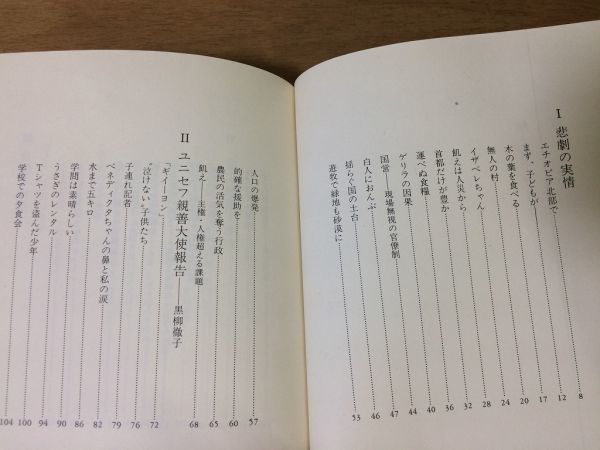 I 悲劇の実情
エチオピア北部で 8
まず、子どもが 12
木の葉を食べる 17
無人の村 20
イザベレちゃん 24
飢えは人災から 28
首都だけが豊か 32
運べぬ食糧 36
ゲリラの因果 40
国営――現場無視の官僚制 44
白人におんぶ 47
揺らぐ国の土台 46
遊牧で緑地も砂漠に 53
人口の爆発 57
的確な援助を 60
農民の活気を奪う行政 65
飢え――主権・人権超える課題 68
II ユニセフ親善大使報告――黒柳徹子
「ギイーヨン」 72
“泣けない”子供たち 76
子連れ記者 79
ベネディクタちゃんの鼻と私の涙 82
水まで五キロ 86
学問は素晴らしい 90
うさぎのレンタル 94
Tシャツを盗んだ少年 100
学校での夕食会 104